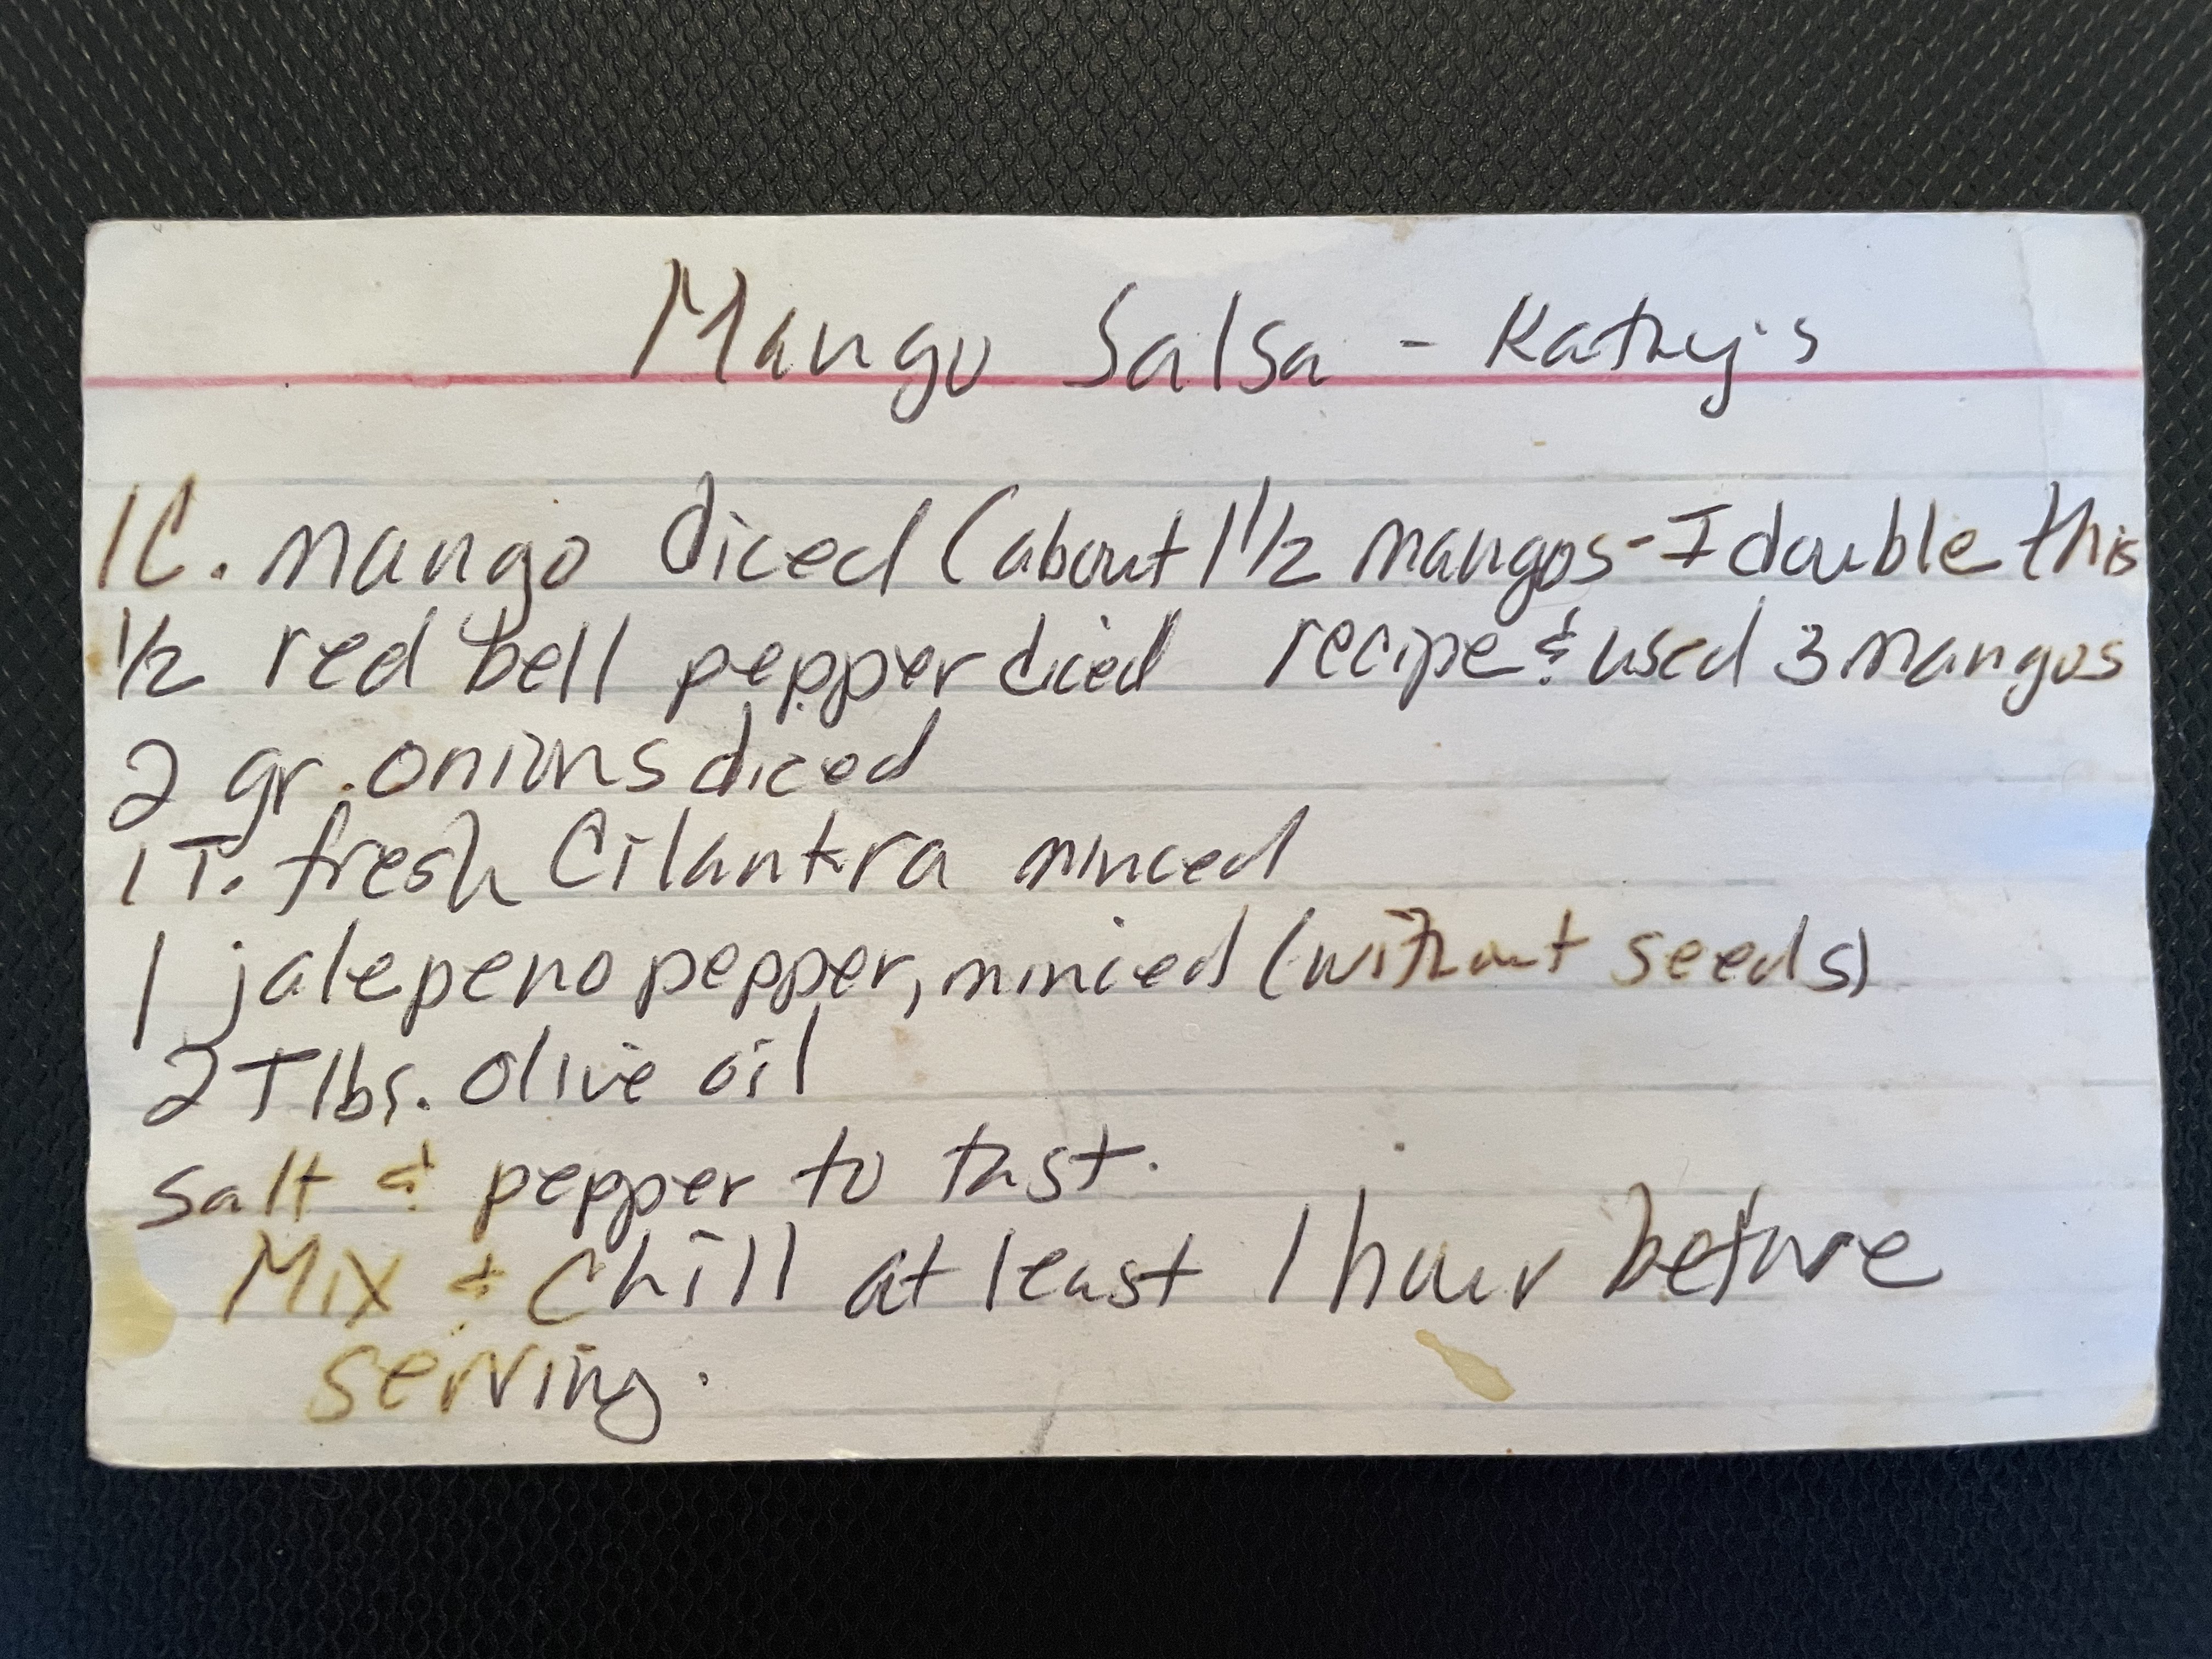 Mango Salsa - Kathy's
1C. mango diced (about 1 1/2 mangos - I double this
1/2 red bell pepper diced recipe & used 3 mangos
2 gr. onions diced
1 T. fresh Cilantra minced
1 jalepeno pepper, minced (without seeds)
2 Tlbs. olive oil
salt & pepper to tast.
Mix & Chill at least 1 hour before
serving.